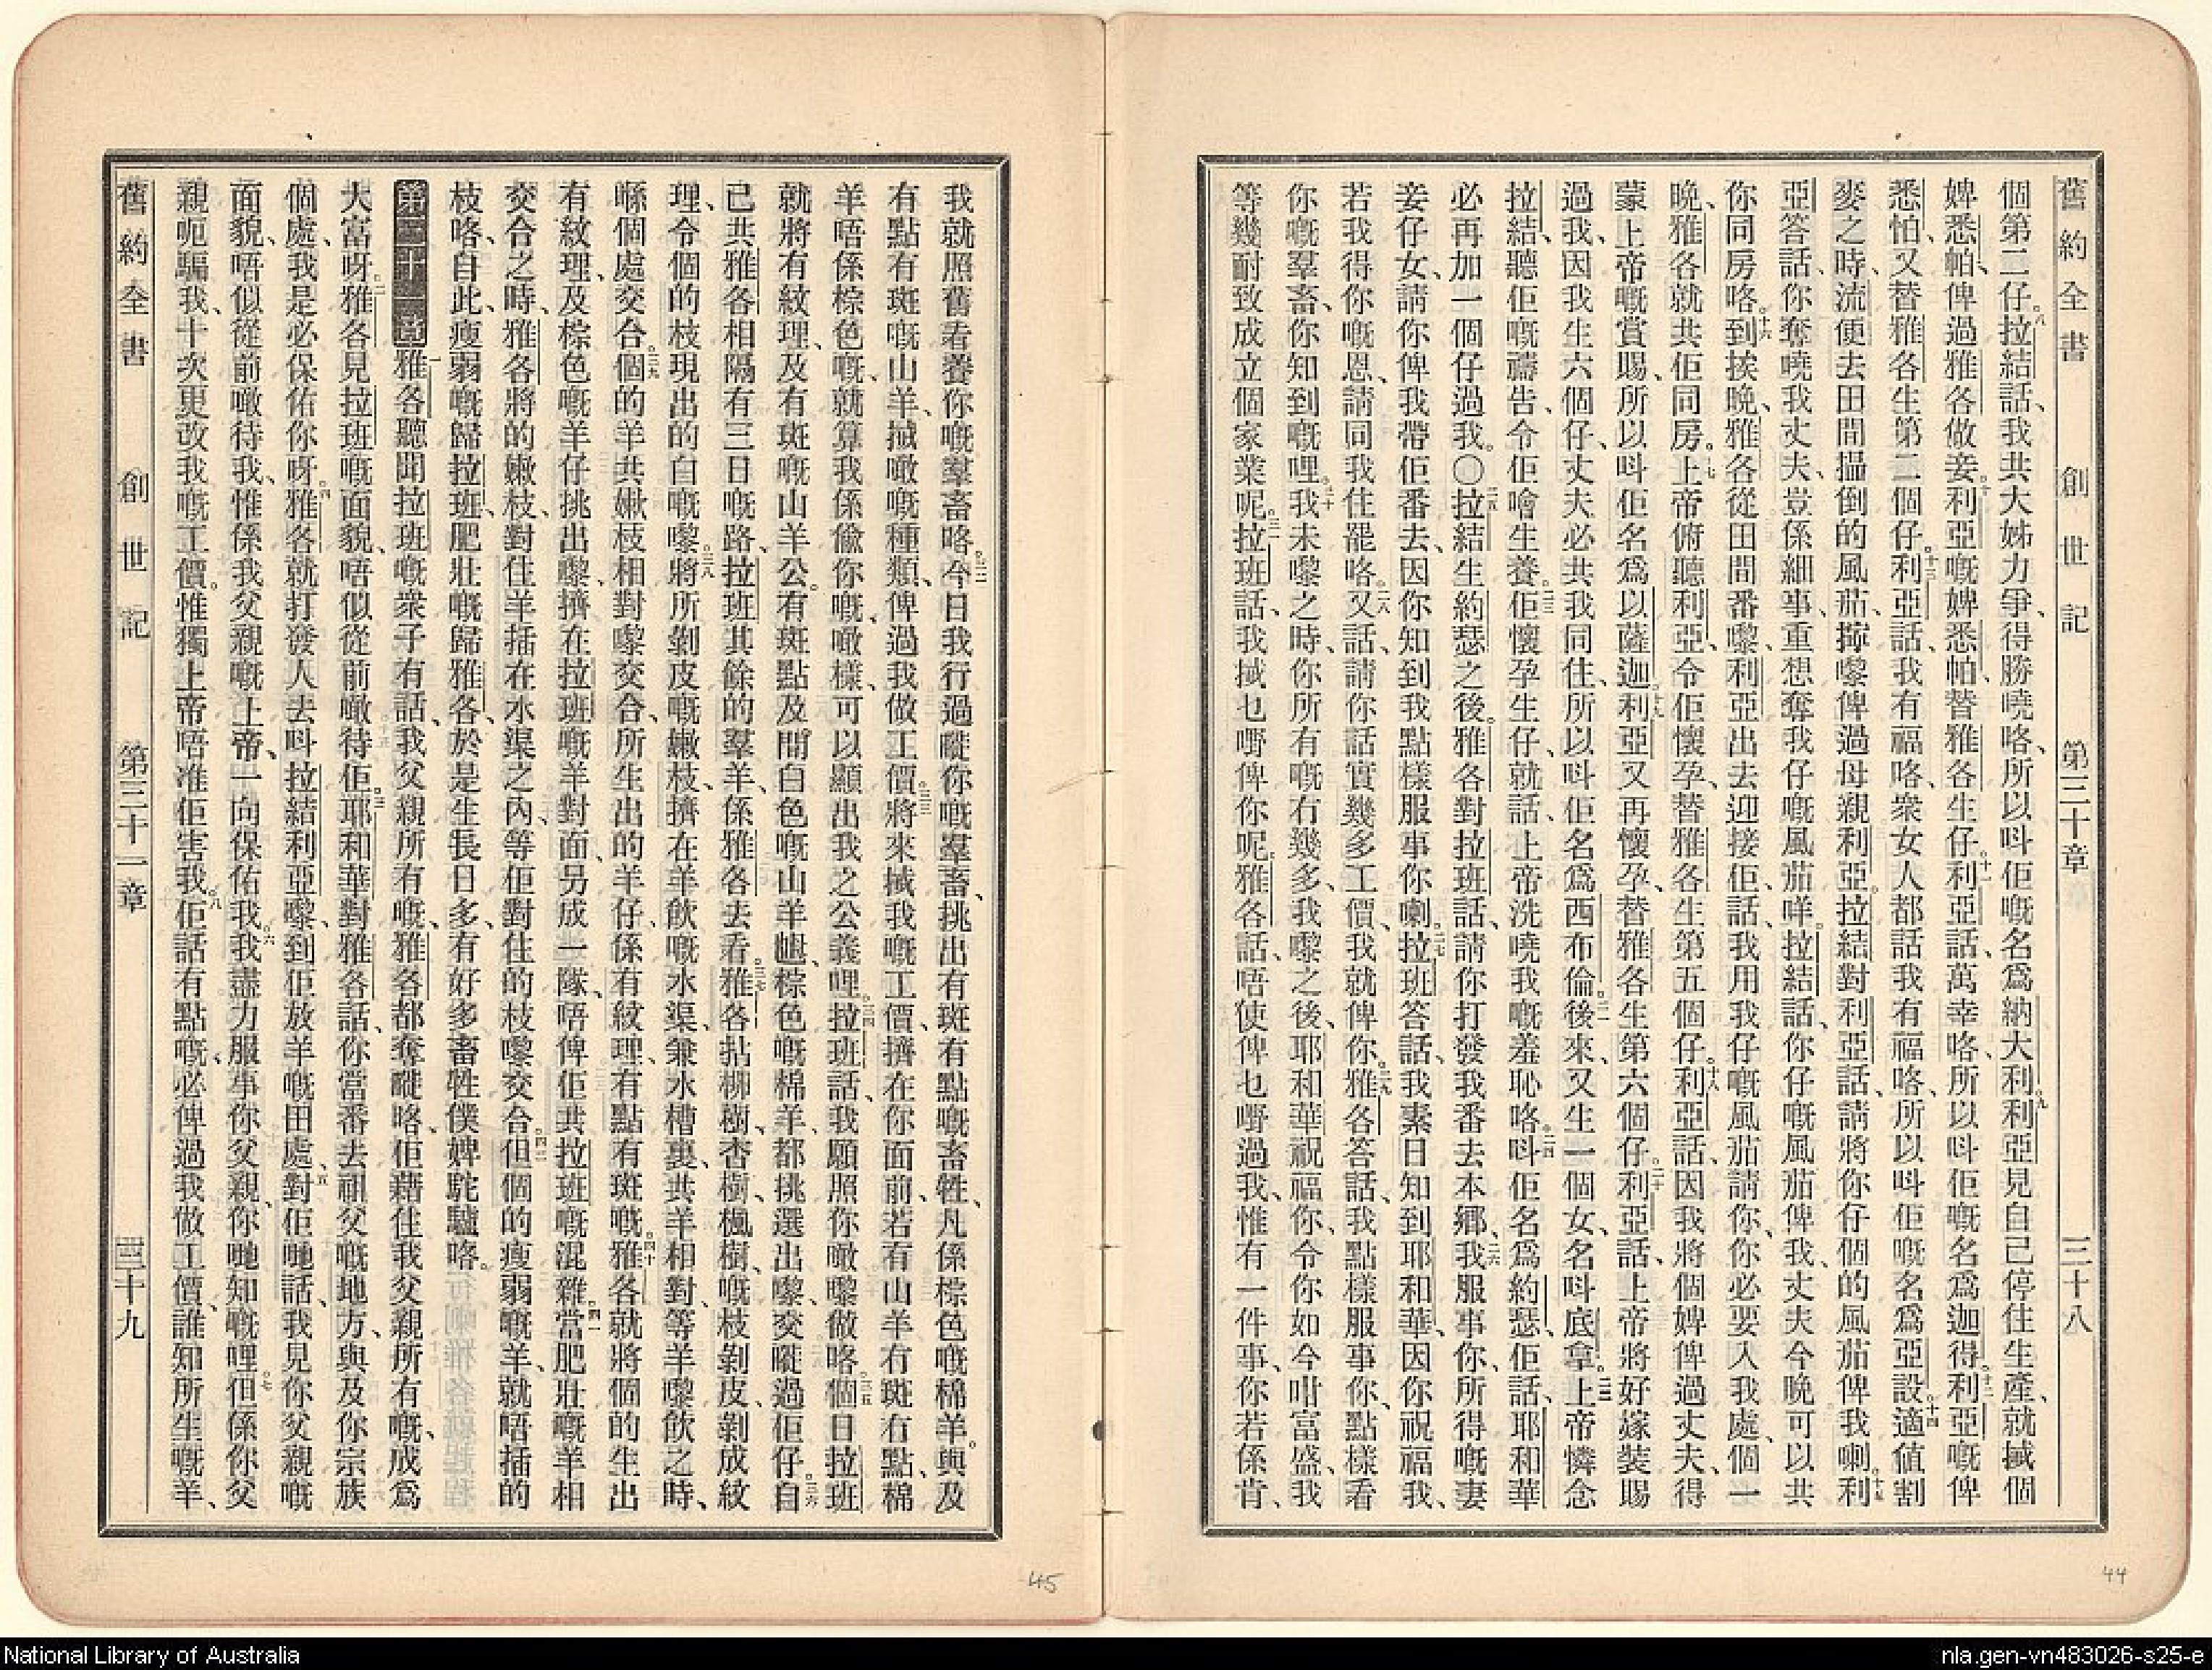 舊約全書 創世記 第三十章 三十八
個第二仔。八拉結話、我共大姊力爭、得勝嘵咯、所以呌佢嘅名爲納大利。九利亞見自己停住生產、就搣個
婢悉帕、俾過雅各做妾。十利亞嘅婢悉帕、替雅各生仔。十一利亞話、萬幸咯、所以呌佢嘅名爲迦得。十二利亞嘅俾
悉怕、又替雅各生第二個仔。十三利亞話、我有福咯、衆女人都話我有福咯、所以呌佢嘅名爲亞設。十四適值割
麥之時、流便去田間搵倒的風茄、擰嚟俾過母親利亞。拉結對利亞話、請將你仔個的風茄俾我喇。十五利
亞答話、你奪嘵我丈夫、豈係細事、重想奪我仔嘅風茄咩。拉結話、你仔嘅風茄俾我、丈夫今晚可以共
你同房咯。十六到挨晚、雅各從田間番嚟、利亞出去迎接佢、話、我用我仔嘅風茄請你、你必要入我處、個一
晚、雅各就共佢同房。十七上帝俯聽利亞、令佢懷孕、替雅各生第五個仔。十八利亞話、因我將個婢俾過丈夫、得
蒙上帝嘅賞賜、所以呌佢名爲以薩迦。十九利亞又再懷孕、替雅各生第六個仔。二十利亞話、上帝將好嫁裝賜
過我、因我生六個仔、丈夫必共我同住、所以呌佢名爲西布倫。二一後來、又生一個女、名呌底拿。二二上帝憐念
拉結、聽佢嘅禱告、令佢噲生養。二三佢懷孕生仔、就話、上帝洗嘵我嘅羞恥咯。二四呌佢名爲約瑟、佢話、耶和華
必再加一個仔過我。〇二五拉結生約瑟之後。雅各對拉班話、請你打發我番去本鄉、二六我服事你、所得嘅妻
妾仔女、請你俾我帶佢番去、因你知到我點樣服事你喇。二七拉班答話、我素日知到耶和華、因你祝福我、
若我得你嘅恩、請同我住罷咯。二八又話、請你話實幾多工價、我就俾你。二九雅各答話、我點樣服事你、點樣看
你嘅羣畜、你知到嘅哩。三十我未嚟之時、你所有嘅冇幾多、我嚟之後、耶和華祝福你、令你如今咁富盛、我
等幾耐致成立個家業呢。三一拉班話、我搣乜嘢俾你呢、雅各話、唔使俾乜嘢過我、惟有一件事、你若係肯、
我就照舊看養你嘅羣畜咯。三二今日我行過嘥你嘅羣畜、挑出有斑有點嘅畜牲、凡係棕色嘅棉羊。與及
有點有斑嘅山羊、搣噉嘅種類、俾過我做工價。三三將來搣我嘅工價、擠在你面前、若有山羊冇斑冇點、棉
羊唔係棕色嘅、就算我係偸你嘅、噉樣、可以顯出我之公義哩。三四拉班話、我願照你噉嚟做咯。三五個日拉班
就將有紋理、及有斑嘅山羊公。有斑點及間白色嘅山羊乸、棕色嘅棉羊、都挑選出嚟、交嘥過佢仔。三六自
己共雅各相隔有三日嘅路、拉班其餘的羣羊、係雅各去看。三七雅各拈柳樹、杏樹、楓樹、嘅枝剝皮、剝成紋
理、令個的枝現出的白嘅嚟。三八將所剝皮嘅嫩枝、擠在羊飮嘅水渠、兼水槽裏、共羊相對、等羊嚟飮之時、
喺個處交合。三九個的羊共嫩枝相對嚟交合、所生出的羊仔、係有紋理、有點有斑嘅。四十雅各就將個的生出
有紋理、及棕色嘅羊仔挑出嚟、擠在拉班嘅羊對面、另成一隊、唔俾佢共拉班嘅混雜。四一當肥壯嘅羊相
交合之時、雅各將的嫩枝、對住羊插在水渠之內、等佢對住的枝嚟交合。四二但個的瘦弱嘅羊、就唔插的
枝咯、自此、瘦弱嘅歸拉班、肥壯嘅歸雅各、於是生長日多、有好多畜牲僕婢駝驢咯。
第三十一章 一雅各聽聞拉班嘅衆子有話、我父親所有嘅、雅各都奪嘥咯、佢藉住我父親所有嘅、成爲
大富呀。二雅各見拉班嘅面貌、唔似從前噉待佢。三耶和華對雅各話、你當番去祖父嘅地方、與及你宗族
個處、我是必保佑你呀。四雅各就打發人去呌拉結利亞嚟、到佢放羊嘅田處、五對佢哋話、我見你父親嘅
面貌、唔似從前噉待我、惟係我父親嘅上帝、一向保佑我。六我盡力服事你父親、你哋知嘅哩。七但係你父
親呃騙我、十次更改我嘅工價。惟獨上帝唔准佢害我。八佢話有點嘅、必俾過我做工價、誰知所生嘅羊、
舊約全書 創世記 第三十一章 三十九
45
44
National Library of Australia
nla.gen-vn483026-s25-e